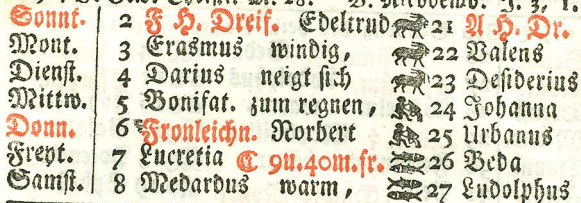 Sonnt. 2 F H. Dreif. Edeltrud 21 A H. Dr.
Mont. 3 Erasmus windig, 22 Valens
Dienst. 4 Darius neigt sich 23 Desiderius
Mittw. 5 Bonifat. zum regnen, 24 Johanna
Donn. 6 Fronleichn. Norbert 25 Urbanus
Freyt. 7 Lucretia ☾ 9u.40m.fr. 26 Beda
Samst. 8 Medardus warm, 27 Ludolphus